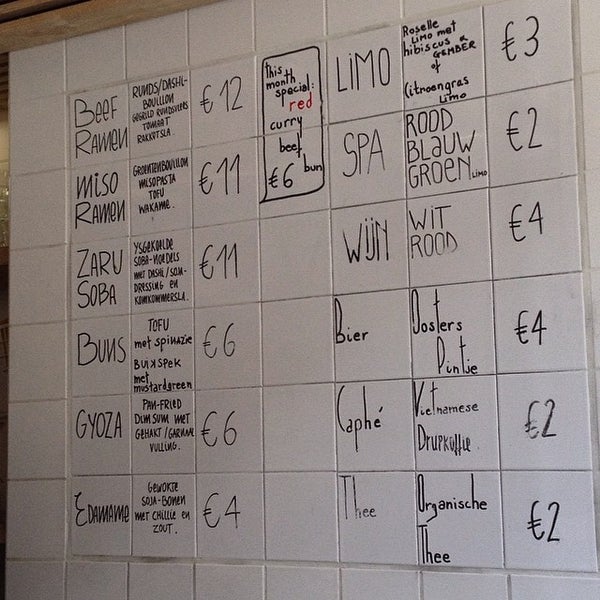 Beef
Ramen
RUNDS/DASHI-
BOUILLON
RUNDVLEES
TOMAAT
RAKETSLA.
€12
MISO
Ramen
GROENTENBOUILLON
MISOPASTA
TOFU
WAKAME.
€11
ZARU
SOBA
YSGEKOELDE
SOBA-NOEDELS
MET DASHI/SOJA-
DRESSING EN
KOMKOMMERSLA.
€11
BUNS
TOFU
met spinazie
BUIKSPEK
met
mustardgreen
€6
GYOZA
PAN-FRIED
DIMSUM MET
GEHAKT/GARNAAL
VULLING.
€6
EDAMAME
GEWOKTE
SOJA-BONEN
MET CHILLIE EN
ZOUT.
€4
this
month
special:
red
curry
beef
bun
€6
LIMO
Roselle
LIMO met
hibiscus &
GEMBER
of
Citroengras
Limo
€3
SPA
ROOD
BLAUW
GROEN LIMO
€2
WIJN
WIT
ROOD
€4
Bier
Oosters
Pintje
€4
Caphé
Vietnamese
Drupkoffie.
€2
Thee
Organische
Thee
€2